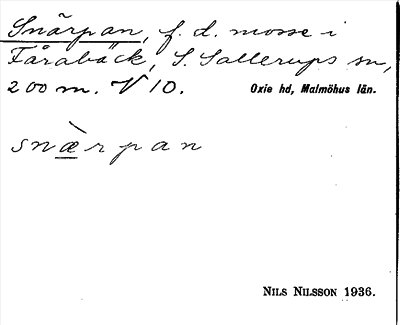 Snärpan, f. d. mosse i
Fårabäck, S. Sallerups sn,
200 m. V 10.
Oxie hd, Malmöhus län.
snæ̀rpan
NILS NILSSON 1936.